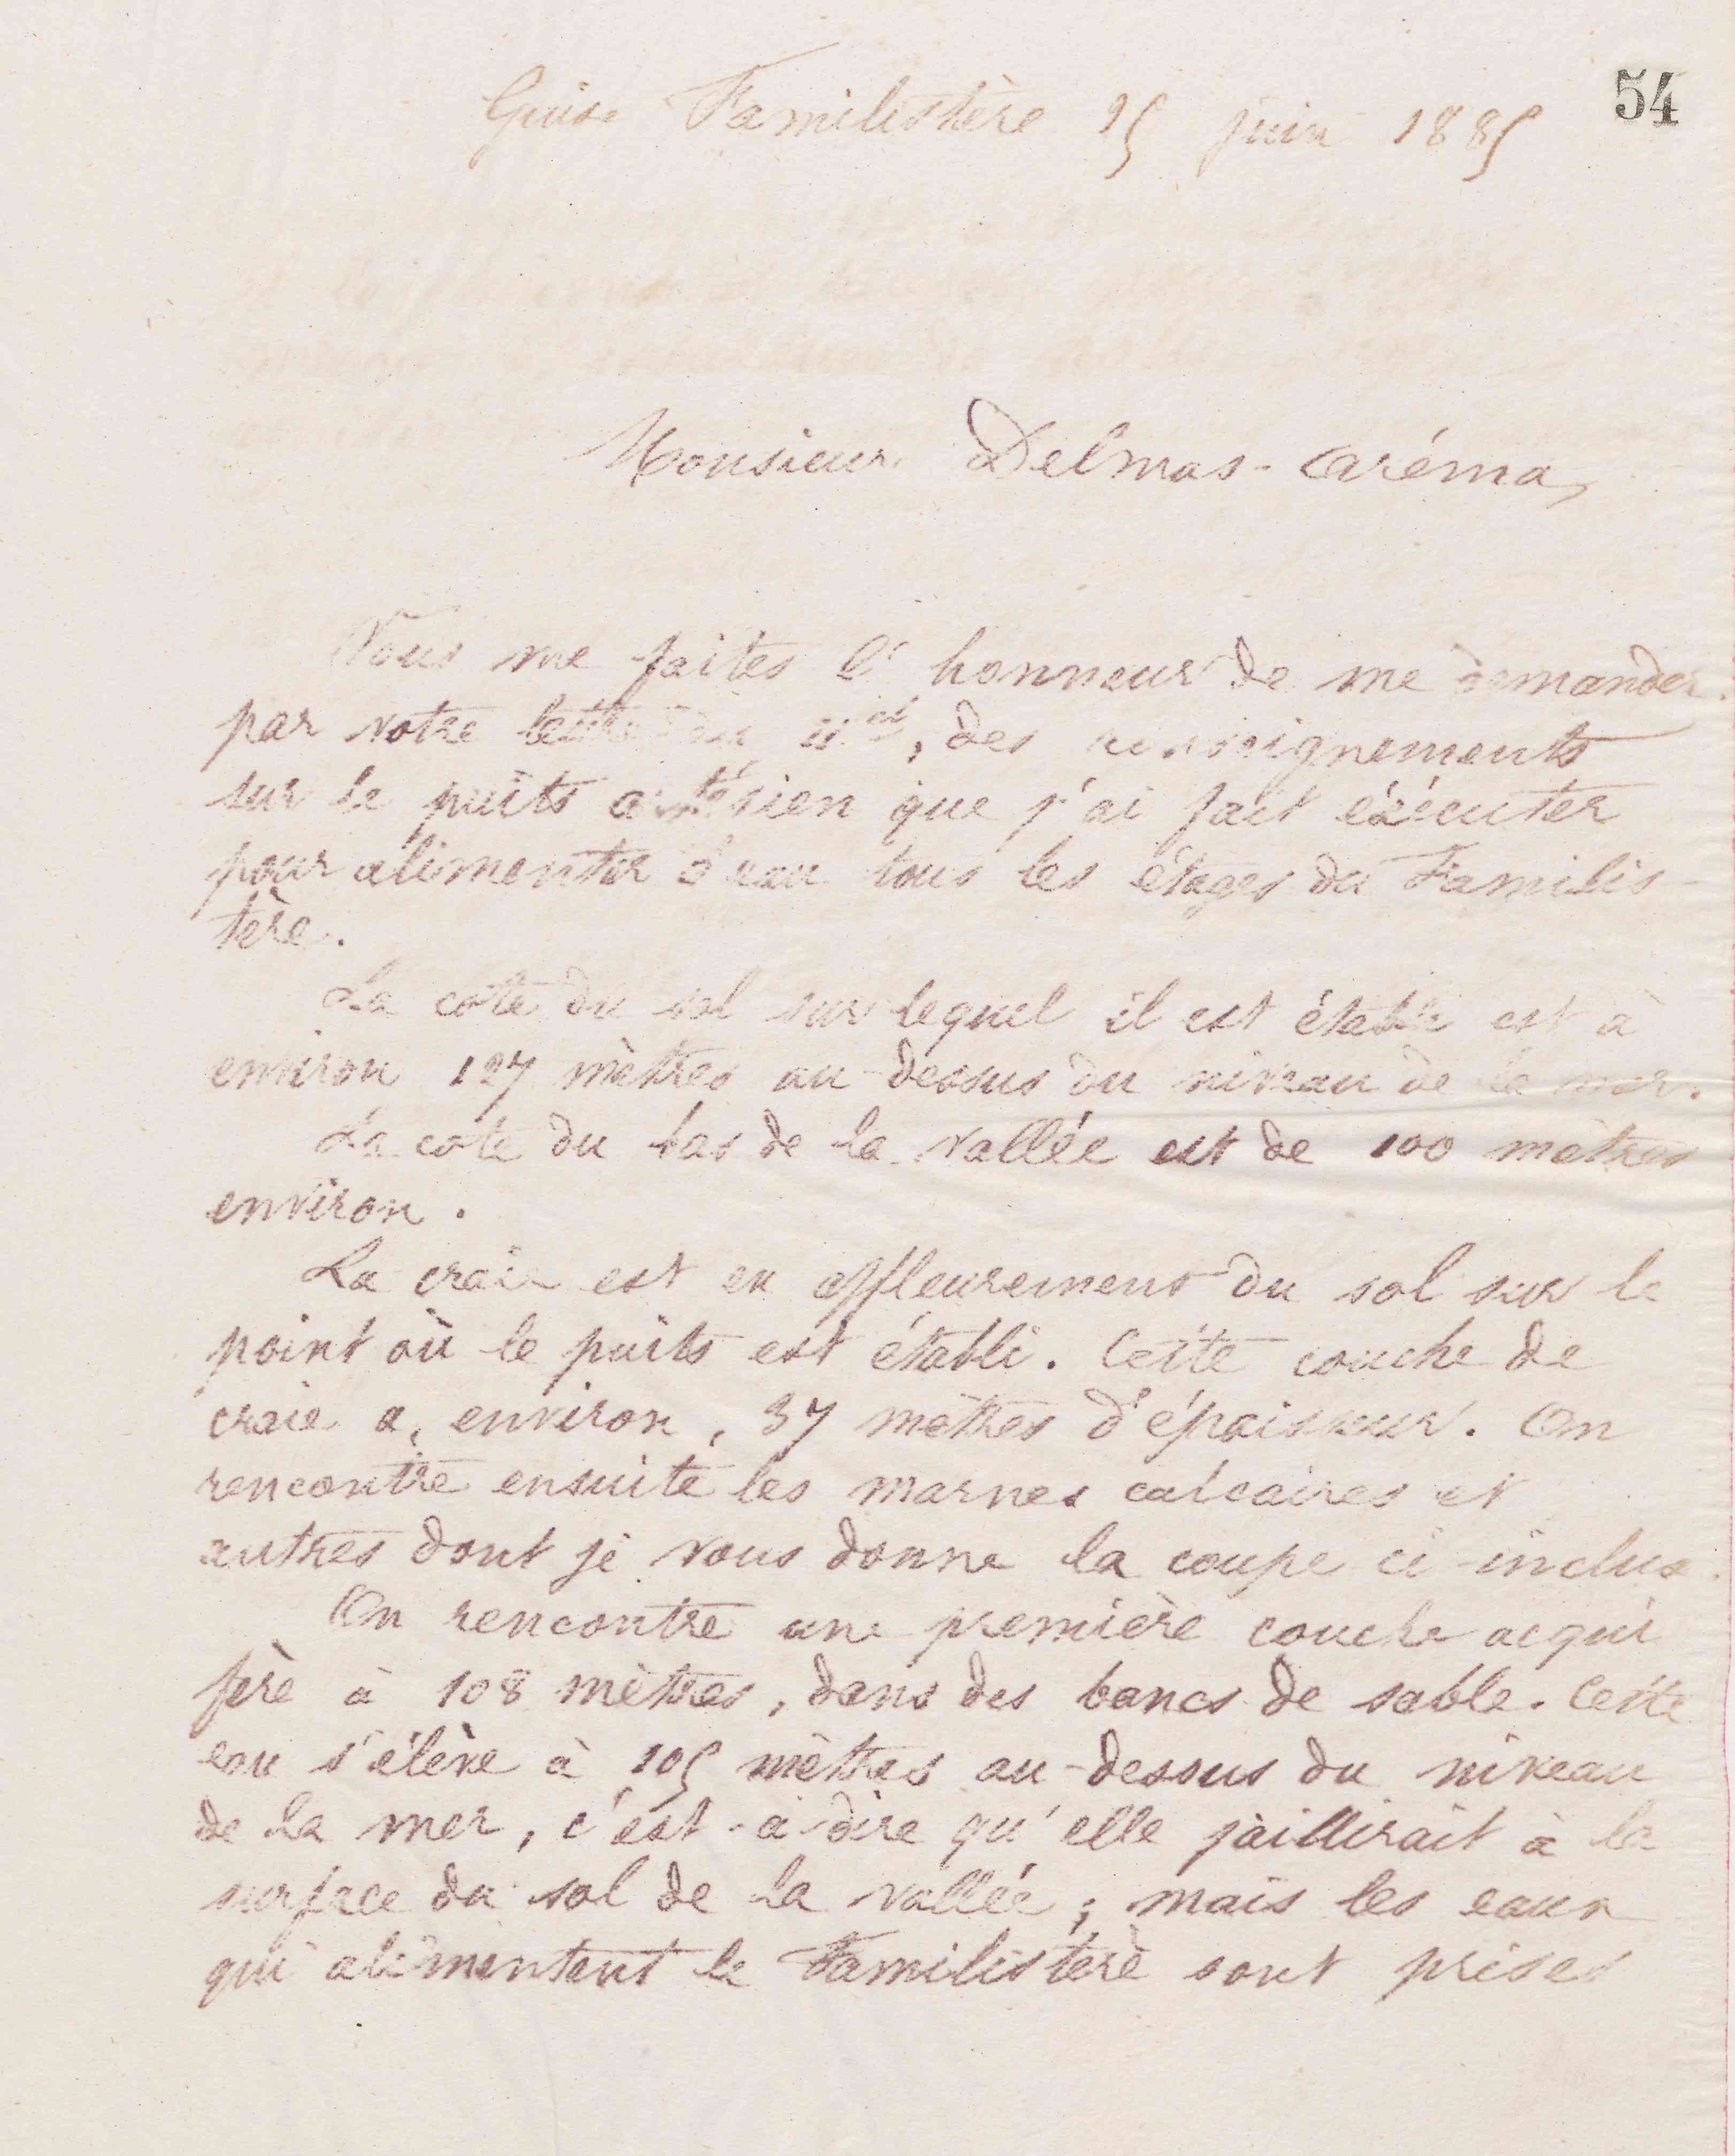 54
Guise Familistère 15 juin 1885
Monsieur Delmas-Aréma,
Vous me faites l'honneur de me demander
par votre lettre du 11 ct, des renseignements
sur le puits artésien que j'ai fait éxécuter
pour alimenter d'eau tous les étages du Familis-
tère.
La cote du sol sur lequel il est établi est à
environ 127 mètres au-dessus du niveau de la mer.
La cote du bas de la vallée est de 100 mètres
environ.
La craie est en affleurement du sol sur le
point où le puits est établi. Cette couche de
craie a, environ, 37 mètres d'épaisseur. On
rencontre ensuite les marnes calcaires et
autres dont je vous donne la coupe ci-incluse.
On rencontre une première couche acqui
fère à 108 mètres, dans des bancs de sable. Cette
eau s'élève à 105 mètres au-dessus du niveau
de la mer, c'est-à-dire qu'elle jaillirait à la
surface du sol de la vallée; mais les eaux
qui alimentent le Familistère sont prises